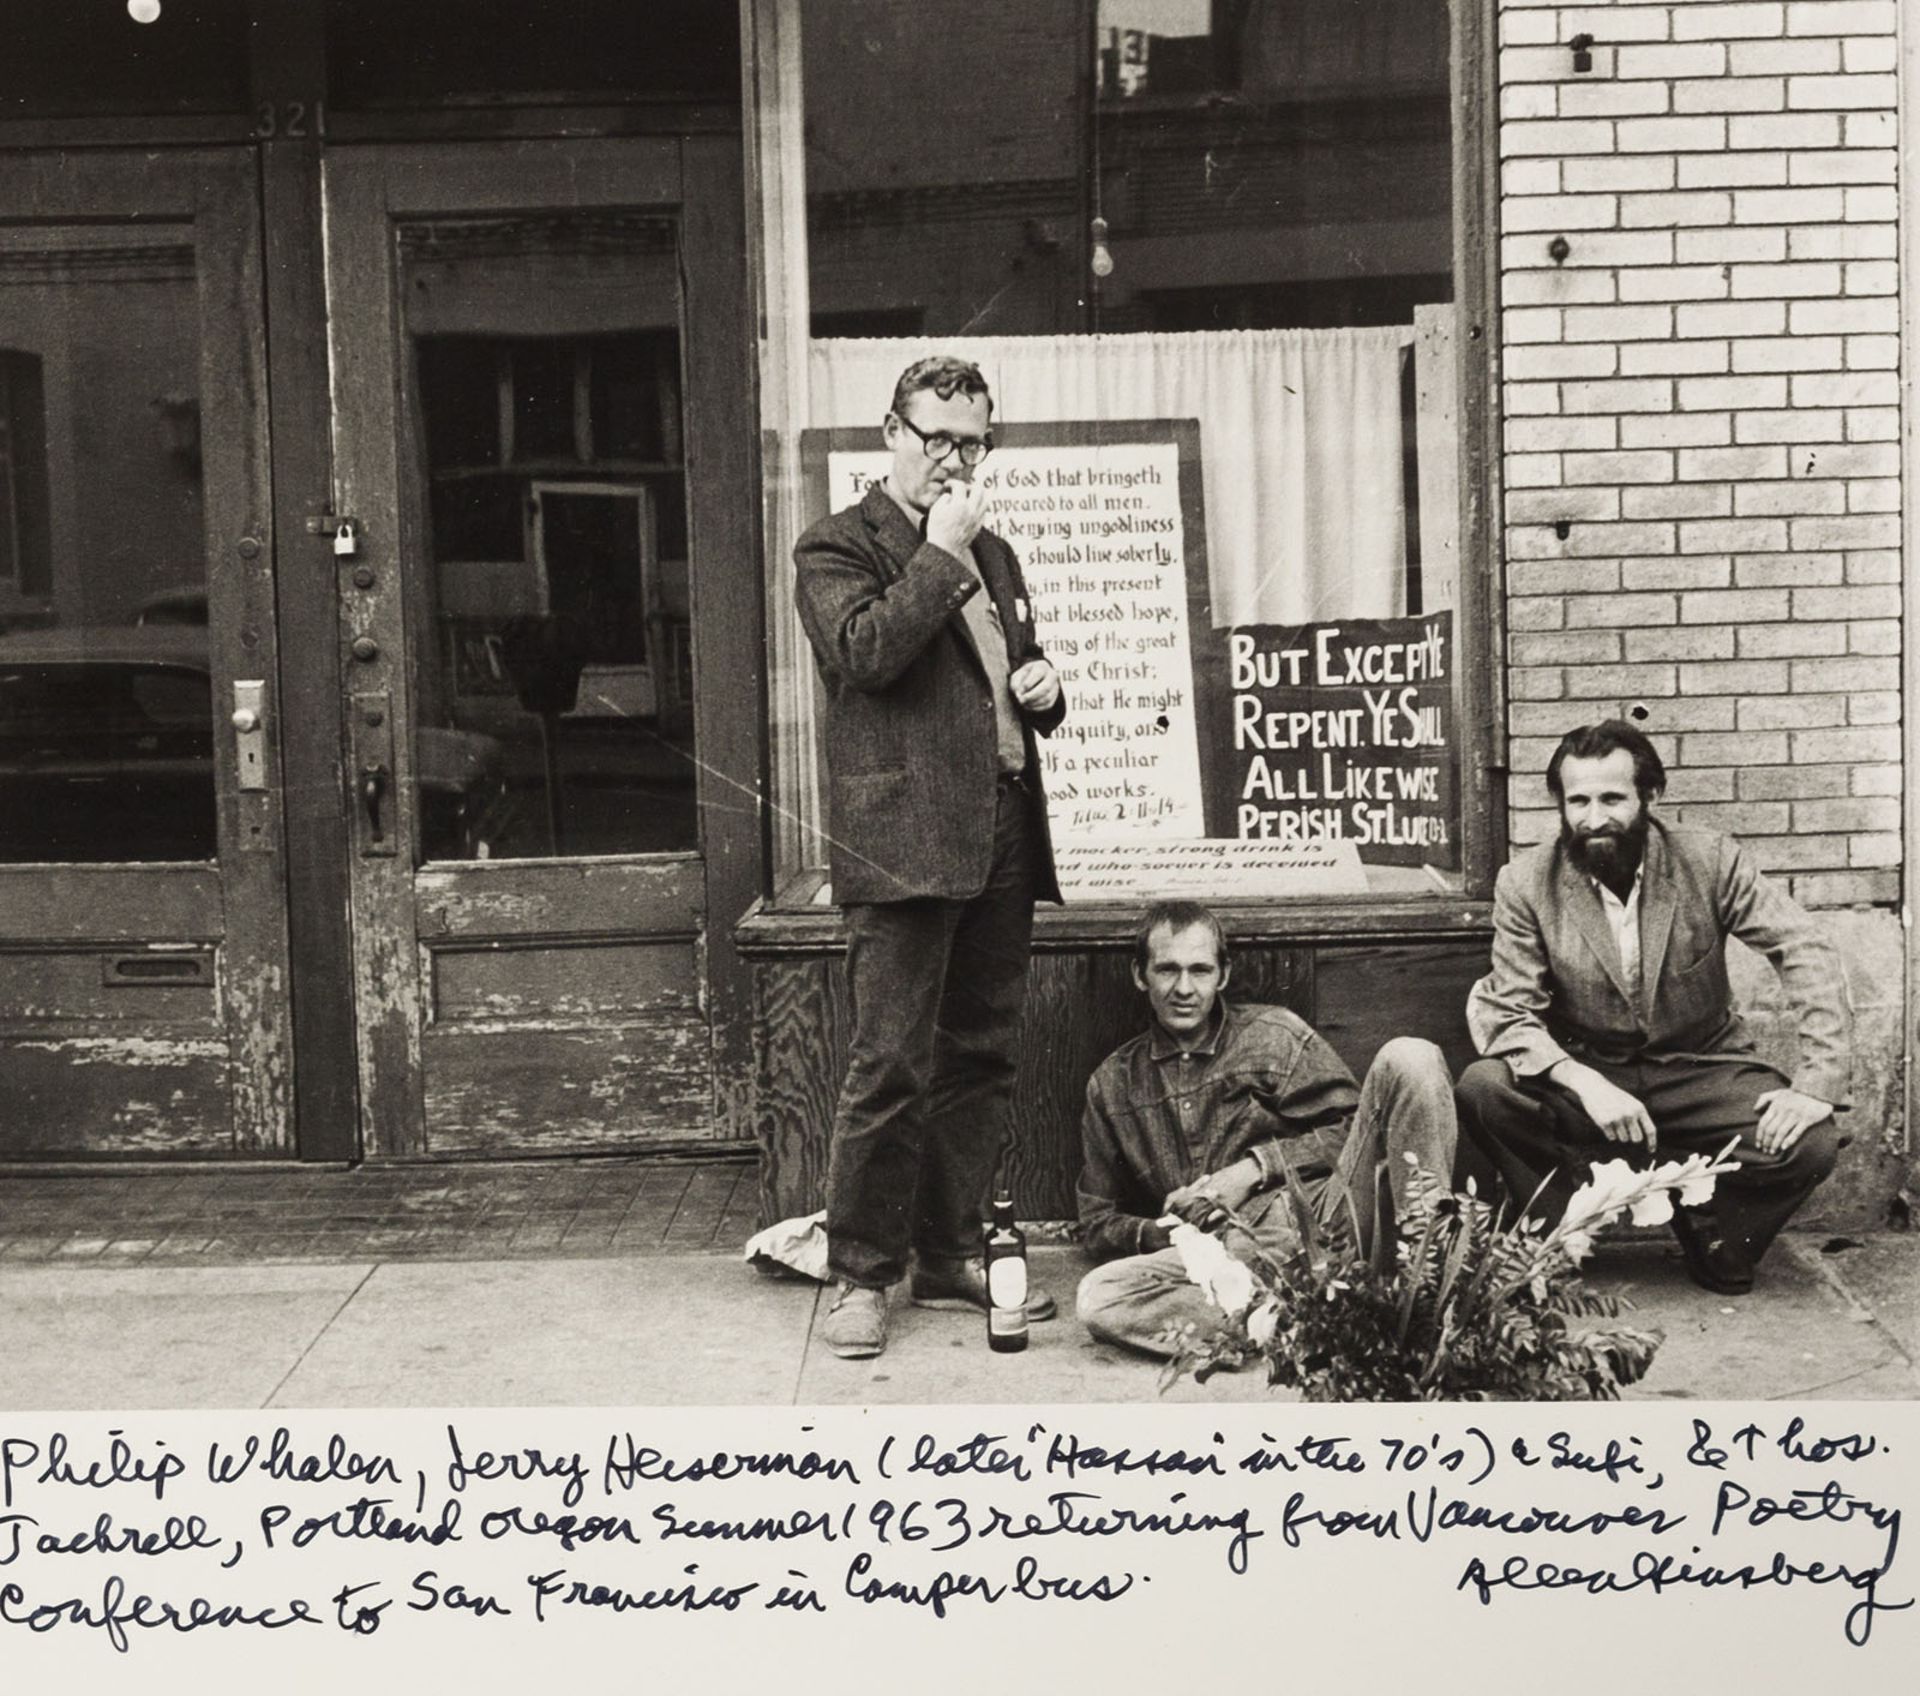 321
Fo of God that bringeth
appeared to all men.
denying ungodliness
should live soberly,
in this present
that blessed hope,
aring of the great
us Christ:
that He might
niquity, and
lf a peculiar
ood works.
Titus 2:11-14
BUT EXCEPT YE
REPENT. YE SHALL
ALL LIKEWISE
PERISH. ST. LUKE 13-3
mocker, strong drink is
nd who-soever is deceived
not wise
Philip Whalen, Jerry Heiserman (later "Hassan" in the 70's) a Sufi, & Thos.
Jackrell, Portland Oregon Summer 1963 returning from Vancouver Poetry
Conference to San Francisco in Camper bus.
Allen Ginsberg